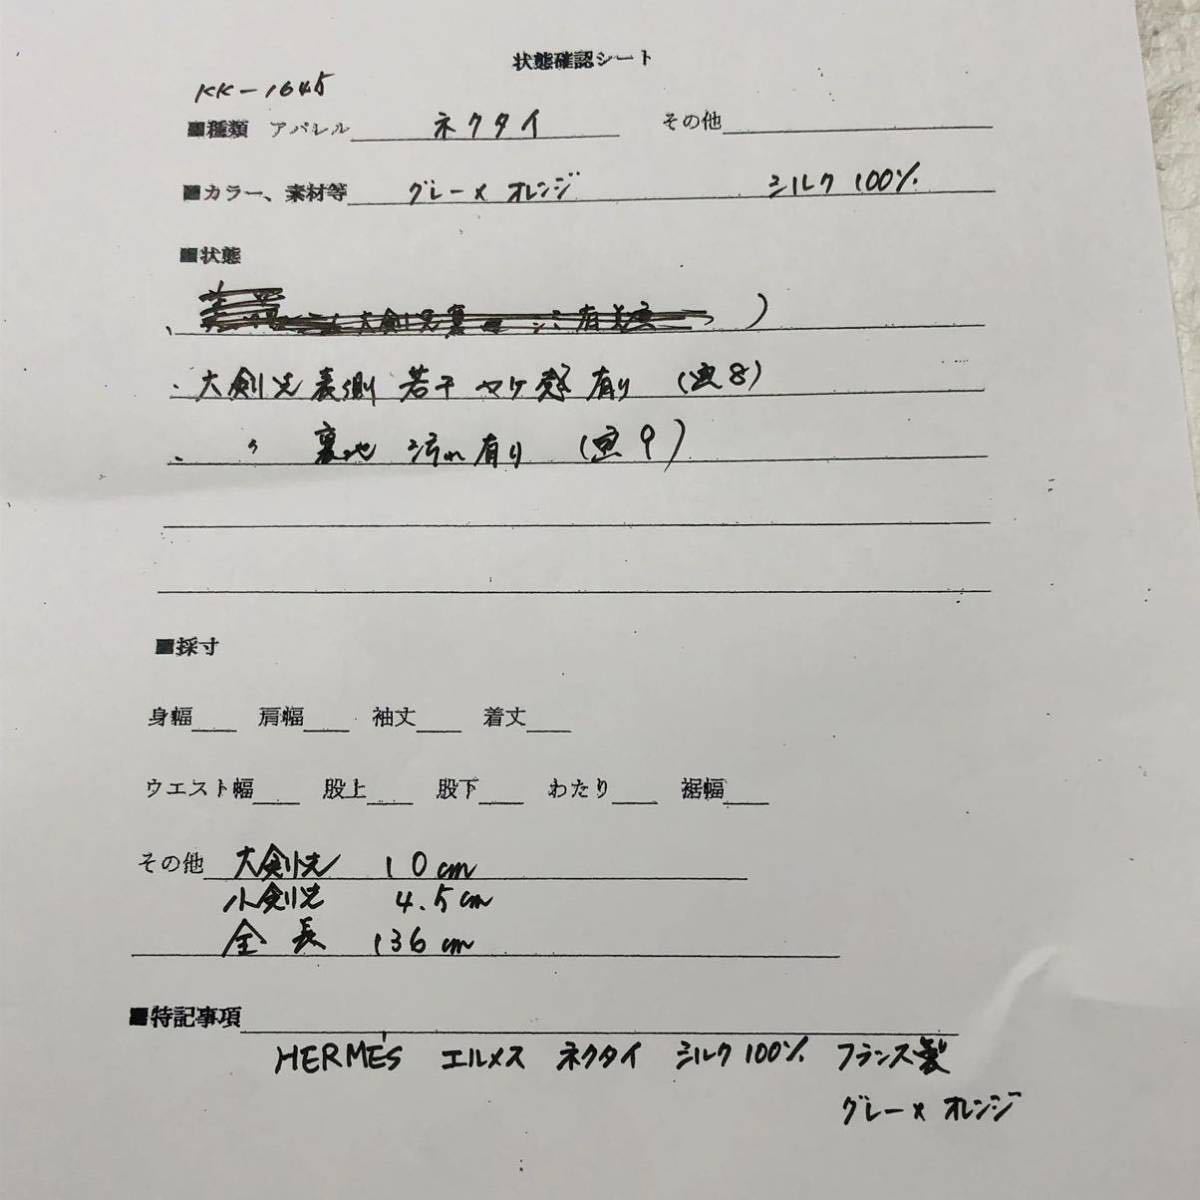 状態確認シート
KK-1645
■種類 アパレル ネクタイ その他
■カラー、素材等 グレー×オレンジ シルク100%
■状態
・大剣先表側 若干ヤケ 有り (画8)
・〃 裏地 汚れ有り (画9)
■採寸
身幅 肩幅 袖丈 着丈
ウエスト幅 股上 股下 わたり 裾幅
その他 大剣先 10cm
小剣先 4.5cm
全長 136cm
■特記事項
HERMÈS エルメス ネクタイ シルク100% フランス製
グレー×オレンジ